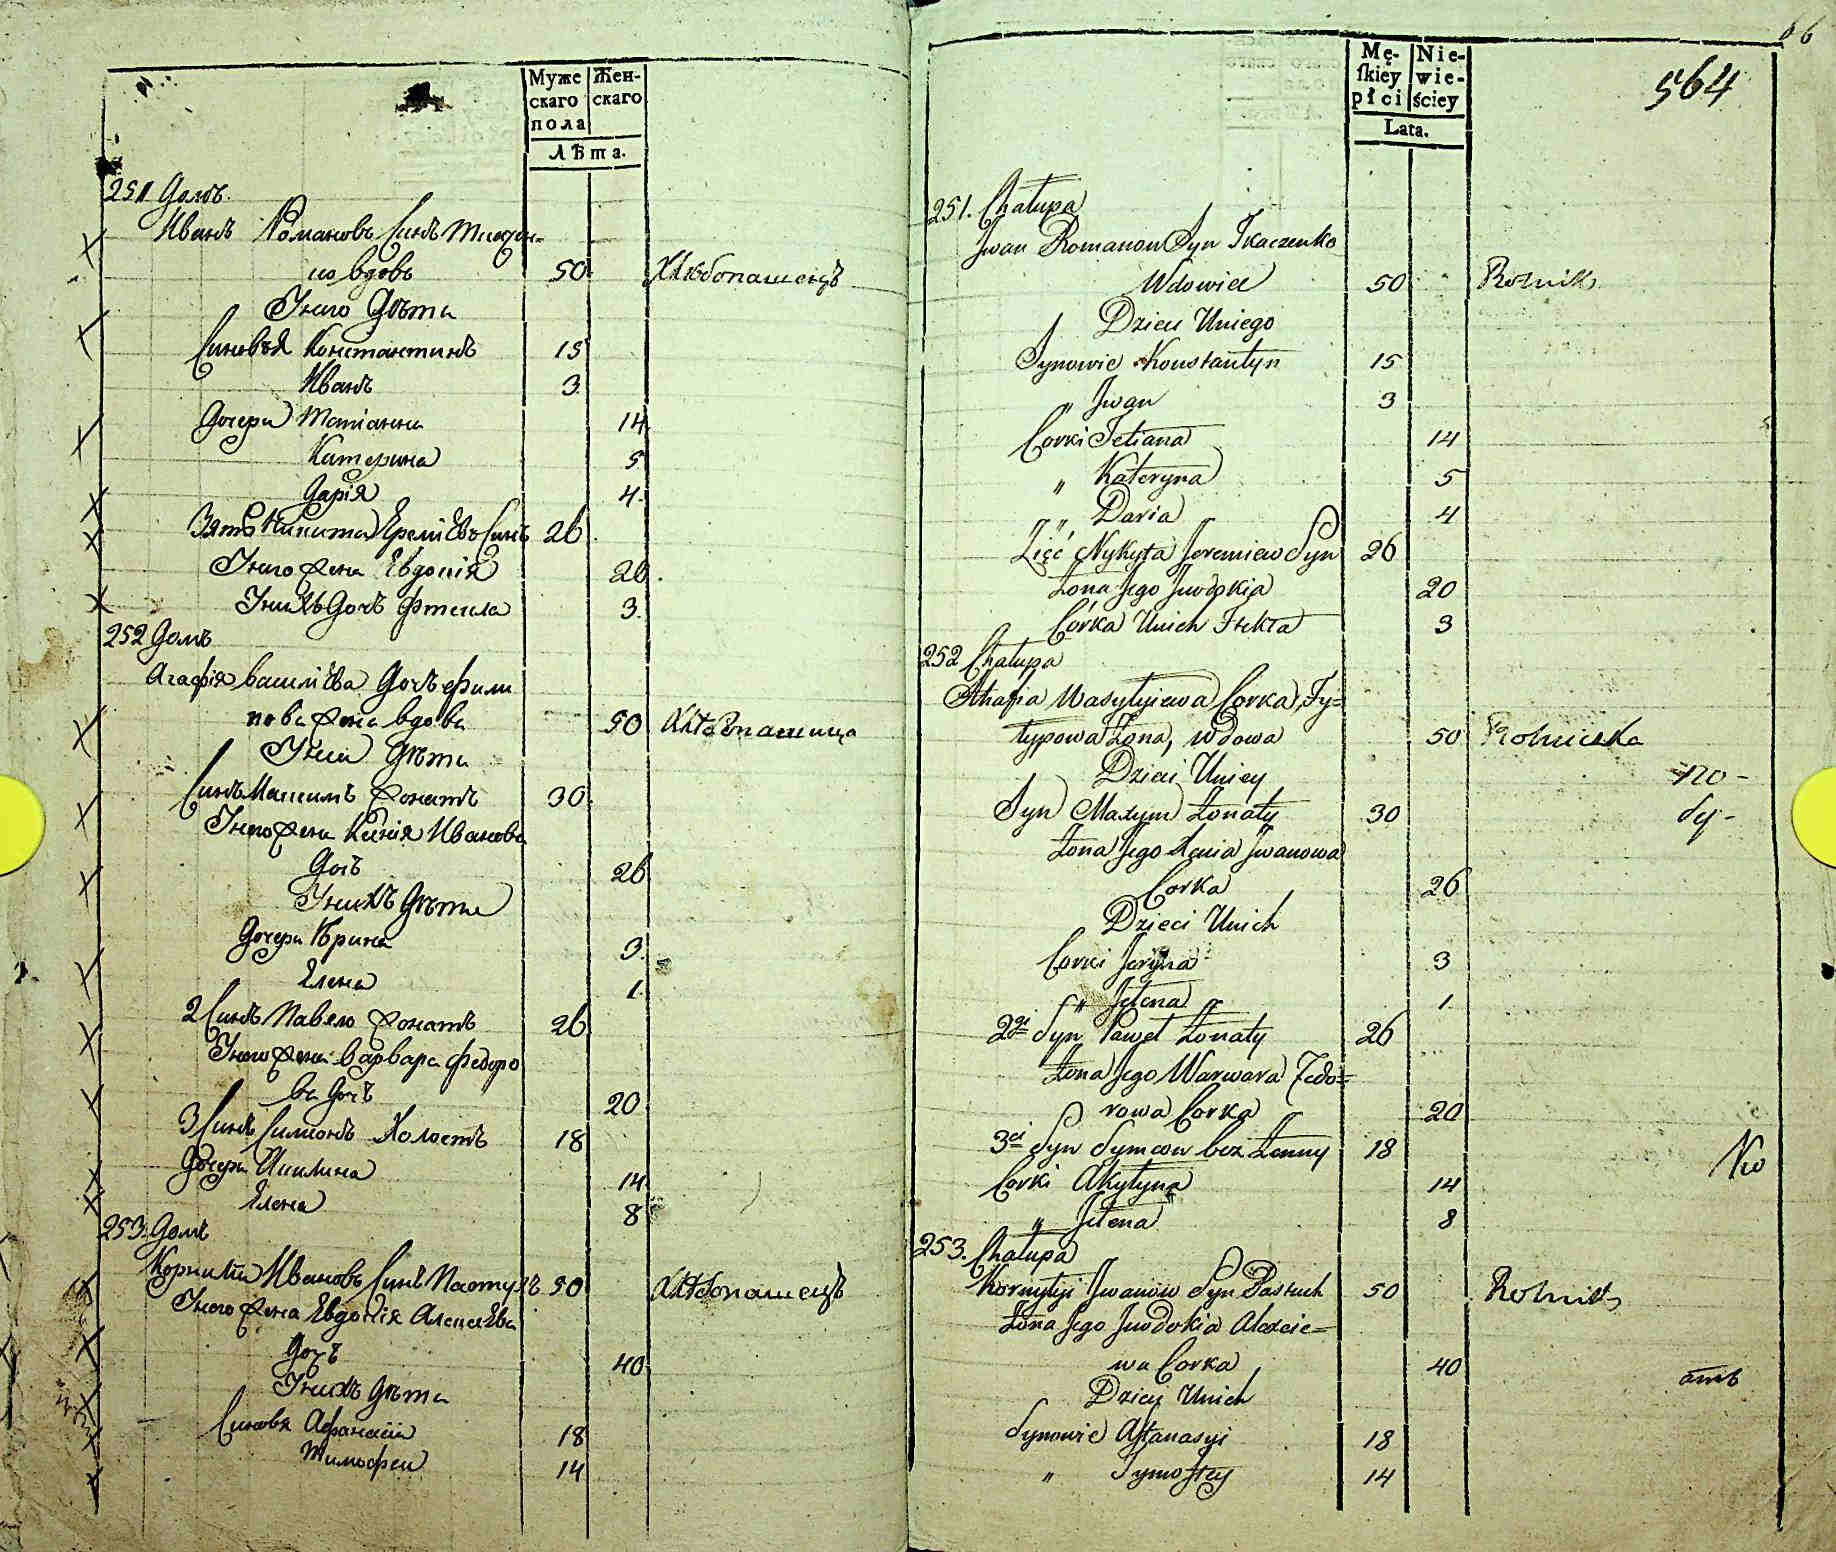 Муже
скаго
пола
Жен-
скаго
Лѣта.
251 Домъ
Иванъ Романовъ Синъ Ткачен-
ко вдовъ 50 Хлѣбопашецъ
У него Дѣти
Синовья Константинъ 15
Иванъ 3
Дочери Татіанна 14
Катерина 5
Дарія 4
Зять Никита Еремѣевъ Синъ 26
У него жена Евдокія 20
У нихъ Дочь Фтекла 3
252 Домъ
Агафія василіева Дочь Фили
пова жена вдова 50 Хлѣбопашица
У неи Дѣти
Синъ Максимъ жонатъ 30
У него жена Ксенія Иванова
Дочь 26
У нихъ Дѣти
Дочери Ирина 3
Елена 1
2 Синъ Павело жонатъ 26
У него жена варвара федоро
ва Дочь 20
3 Синъ Симионъ Холостъ 18
Дочери Акилина 14
Елена 8
253 Домъ
Корнилій Ивановъ Синъ Пастухъ 50 Хлѣбопашецъ
У него жена Евдокія Алексѣева
Дочъ 40
У нихъ Дѣти
Синовя Афанасій 18
Тимофеи 14
66
564
Mę-
ſkiey
płci
Nie-
wie-
ściey
Lata.
251. Chałupa
Jwan Romanow Syn Tkaczenko
Wdowiec 50 Rolnik
Dzieci Uniego
Synowie Konstantyn 15
„ Jwan 3
Corki Tetiana 14
„ Kateryna 5
„ Daria 4
Zięć Nykyta Jeremiew Syn 26
Żona Jego Jwdokia 20
Córka Unich Ftekla 3
252 Chałupa
Ahafia Wasylyiewa Corka, Fy=
lypowa Żona, wdowa 50 Rolniczka
Dzieci Uniey
по-
Syn Maxym Żonaty 30
ду-
Żona Jego Xenia Jwanowa
Corka 26
Dzieci Unich
Corki Jeryna 3
„ Jełena 1
2gi Syn Paweł Żonaty 26
Żona Jego Warwara Fedo=
rowa Corka 20
3ci Syn Symeon bez Żenny 18
Corki Akylyna 14
„ Jełena 8
253. Chałupa
Kornylyi Jwanow Syn Pastuch 50 Rolnik
Żona Jego Jwdokia Alexeie=
wa Corka 40
отъ
Dzieci Unich
Synowie Aftanasyi 18
„ Tymoftey 14